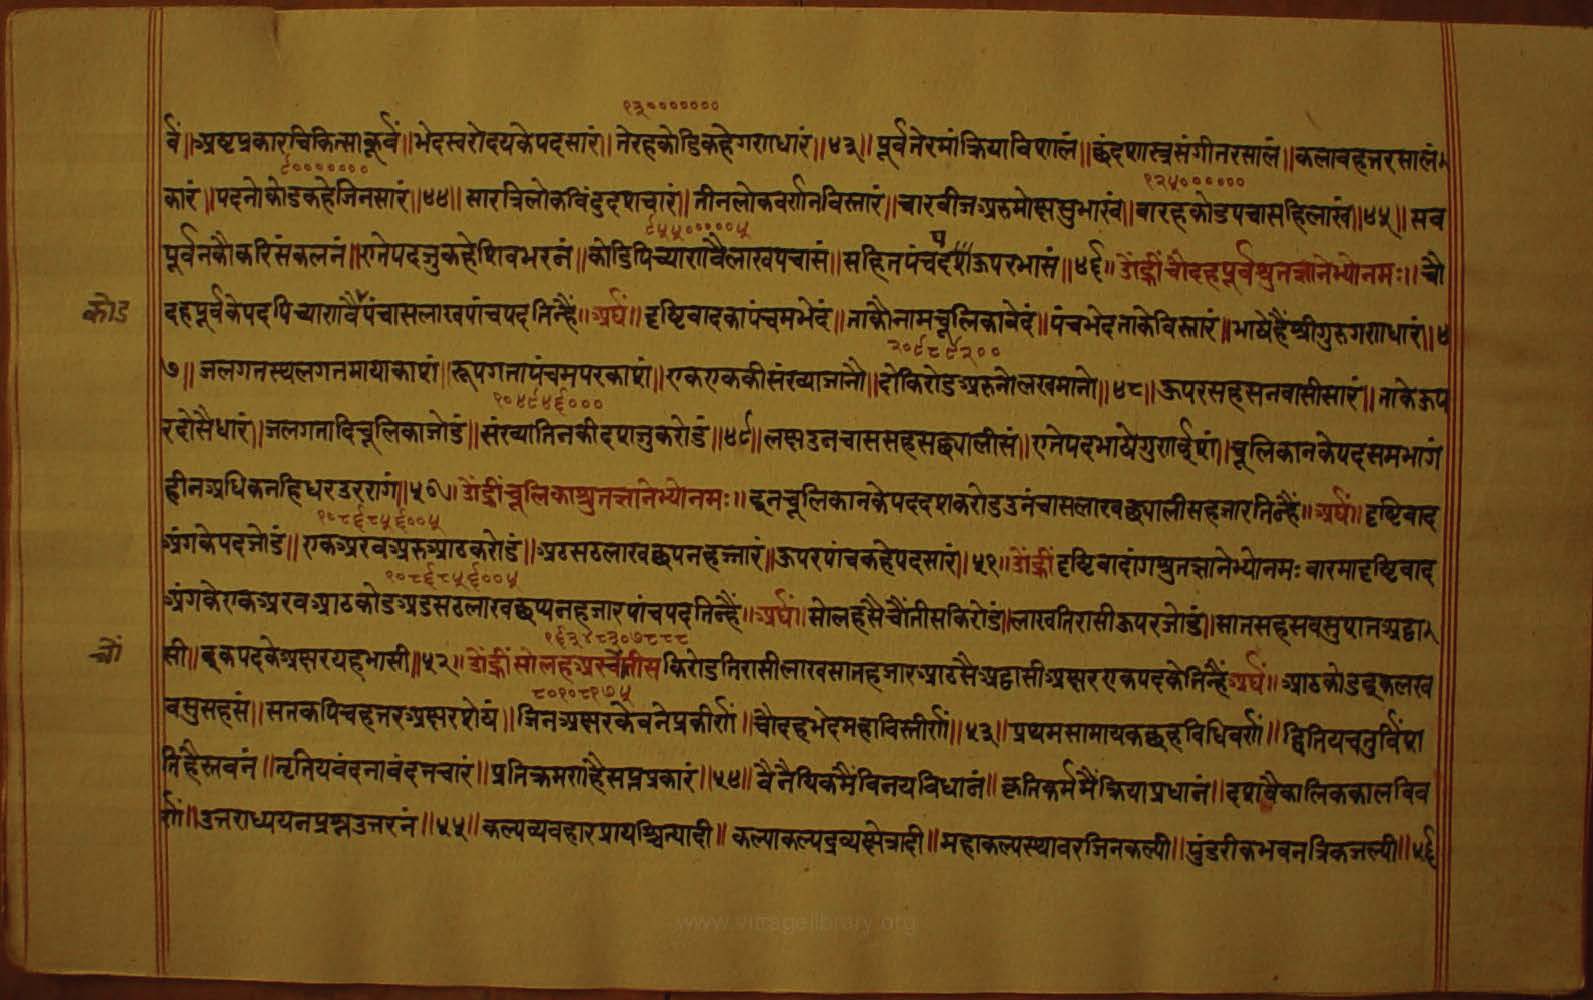 १३०००००००
वं॥ अष्टप्रकारचिकित्साकूवं॥ भेदस्वरोदयकेपदसारं॥ तेरहकोडिकहेगणधारं॥४३॥ पूर्वतेरमांक्रियाविशालं॥ छंदशास्त्रसंगीतरसालं॥ कलावहत्तरसालं
९०००००००
१२५००००००
कारं॥ पदनोकोडकहेजिनसारं॥४४॥ सारत्रिलोकविंदुदशचारं॥ तीनलोकवर्णनविस्तारं॥ चारबीजअरुमोक्षसुभारवं॥ बारहकोडपचासहिलाखं॥४५॥ सव
९५५०००००५
पूर्वनकौकरिसंकलनं॥ एतेपदजुकहेशिवभरनं॥ कोडिपिच्याणवैलाखपचासं॥ सहितपंचदशऊपरभासं॥४६॥ ॐह्रींचौदहपूर्वश्रुतज्ञानेभ्योनमः॥ चौ
कोड
दहपूर्वकेपदपिच्याणवैपंचासलाखपांचपदतिन्हैं॥ अर्घं॥ दृष्टिवादकापंचमभेदं॥ ताकौनामचूलिकावेदं॥ पंचभेदताकेविस्तारं॥ भाषेहैंश्रीगुरुगणधारं॥४
२०९८९२००
७॥ जलगतस्थलगतमायाकाशं॥ रूपगतापंचमपरकाशं॥ एकएककीसंख्याजानौ॥ दोकिरोडअरुनोलखमानो॥४८॥ ऊपरसहसनवासीसारं॥ ताकेऊप
१०४९४६०००
रदोसैधारं॥ जलगतादिचूलिकाजोडं॥ संख्यातिनकीदशजुकरोडं॥४९॥ लक्षउनचाससहसछ्यालीसं॥ एतेपदभाषेगुणईशं॥ चूलिकानकेपदसमभागं
हीनअधिकनहिधरउररागं॥५०॥ ॐह्रींचूलिकाश्रुतज्ञानेभ्योनमः॥ इनचूलिकानकेपददशकरोडउनंचासलाखछ्यालीसहजारतिन्हैं॥ अर्घं॥ दृष्टिवाद
१०८६८५६००५
अंगकेपदजोडं॥ एकअरवअरुआठकरोडं॥ अठसठलाखछपनहज्जारं॥ ऊपरपांचकहेपदसारं॥५१॥ ॐह्रीं दृष्टिवादांगश्रुतज्ञानेभ्योनमः बारमादृष्टिवाद
१०८६८५६००५
अंगकेएकअरवआठकोडअडसठलाखछप्यनहजारपांचपदतिन्हैं॥ अर्घं॥ सोलहसैचौंतीसकिरोडं॥ लाखतिरासीऊपरजोडं॥ सातसहसवसुशतअट्ठा
चौं
१६३४८३०७८८८
सी॥ इकपदकेअक्षरयहभासी॥५२॥ ॐह्रींसोलहअरचौंतीस किरोडतिरासीलाखसातहजारआठसैअट्ठासीअक्षरएकपदकेतिन्हैंअर्घं॥ आठकोडइकलख
८०१०८१७५
वसुसहसं॥ सतकपिचहत्तरअक्षरशेयं॥ जिनअक्षरकेवनेप्रकीर्णं॥ चौदहभेदमहाविस्तीर्णं॥५३॥ प्रथमसामायकछहविधिवर्णं॥ द्वितियचतुर्विंश
तिहैस्तवनं॥ तृतियवंदनावंदनचारं॥ प्रतिक्रमणहैसप्तप्रकारं॥५४॥ वैनैयिकमैंविनयविधानं॥ कृतिकर्ममैंक्रियाप्रधानं॥ दशवैकालिककालविव
र्णं॥ उत्तराध्ययनप्रश्नउत्तरनं॥५५॥ कल्पव्यवहारप्रायश्चित्यादी॥ कल्पाकल्पद्रव्यक्षेत्रादी॥ महाकल्पस्थावरजिनकल्पी॥ पुंडरीकभवनत्रिकजल्पी॥५६
www.vitragelibrary.org